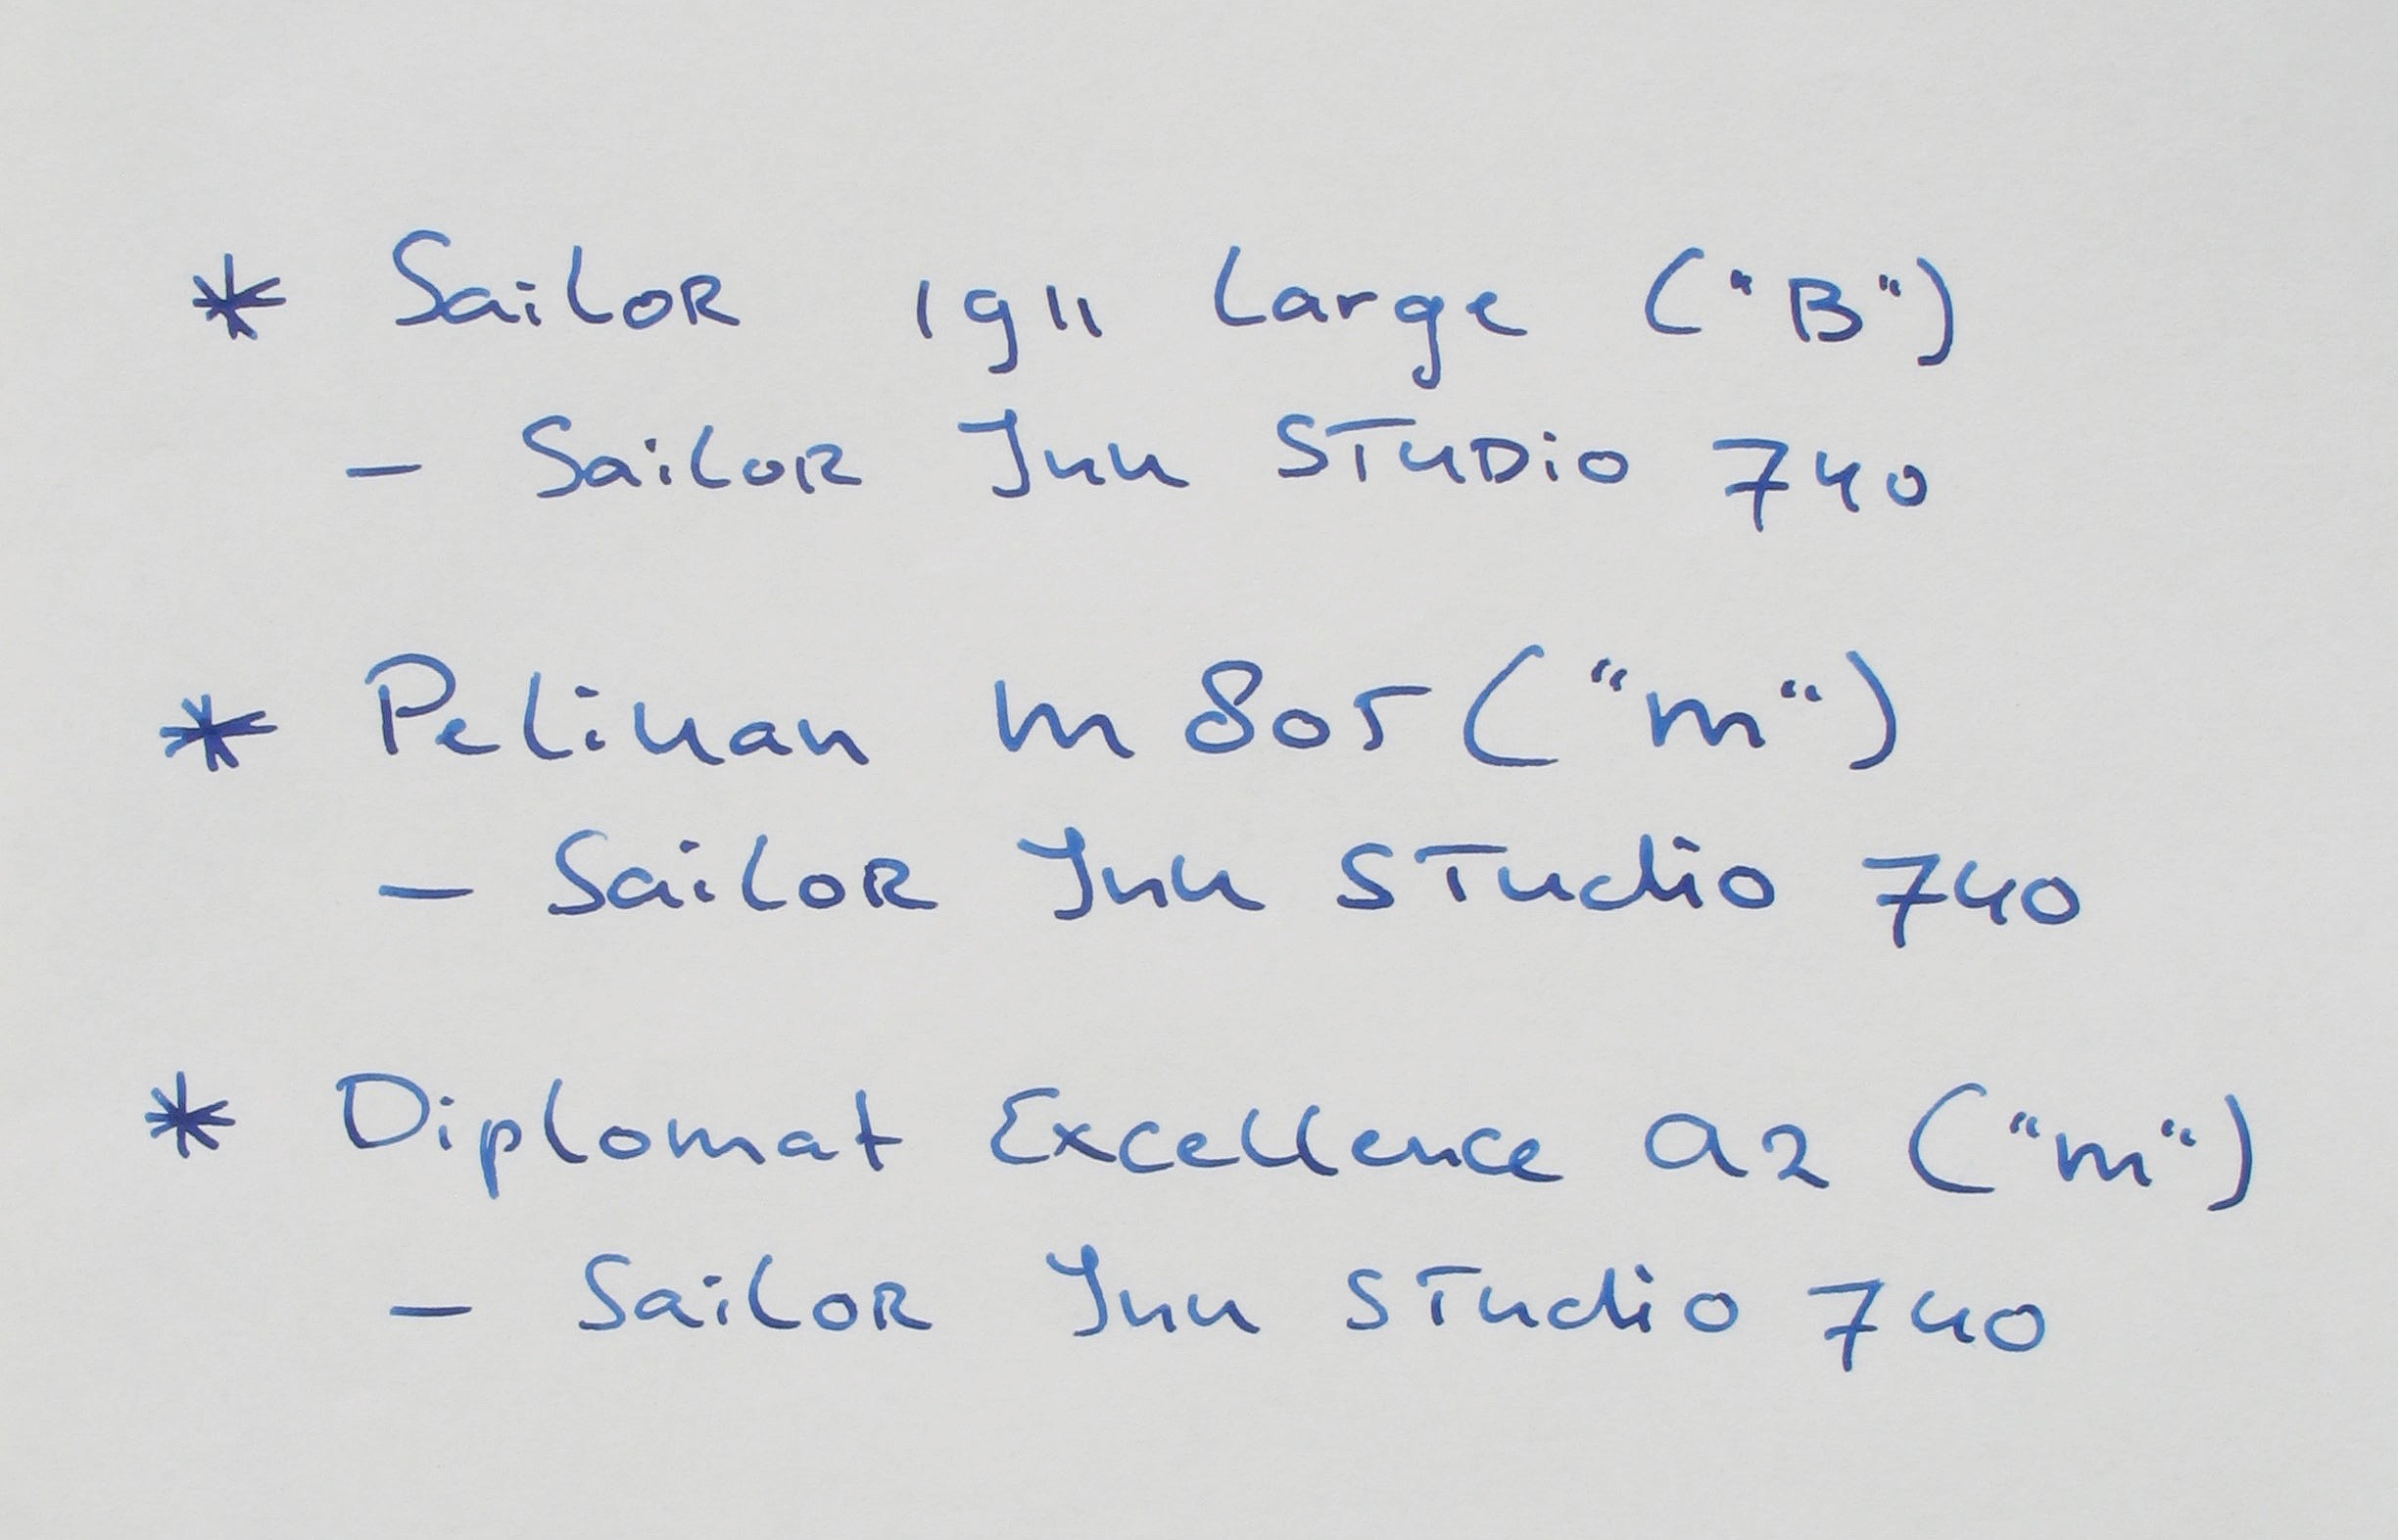 * Sailor 1911 Large ("B")
- Sailor Ink Studio 740
* Pelikan M805 ("M")
- Sailor Ink Studio 740
* Diplomat Excellence A2 ("M")
- Sailor Ink Studio 740